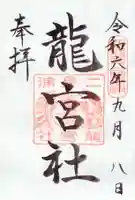 令和六年九月八日
龍宮社
奉拝